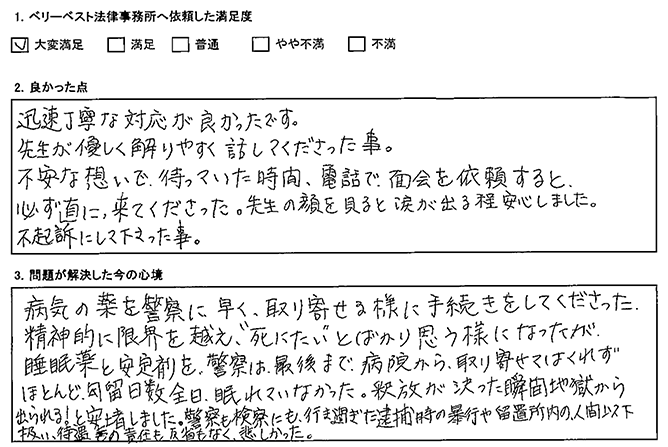 1. ベリーベスト法律事務所へ依頼した満足度
大変満足 満足 普通 やや不満 不満
2. 良かった点
迅速丁寧な対応が良かったです。
先生が優しく解りやすく話してくださった事。
不安な想いで待っていた時間、電話で面会を依頼すると、
必ず直に、来てくださった。先生の顔を見ると涙が出る程安心しました。
不起訴にして下さった事。
3. 問題が解決した今の心境
病気の薬を警察に早く、取り寄せる様に手続きをしてくださった。
精神的に限界を越え、"死にたい"とばかり思う様になったが、
睡眠薬と安定剤を、警察は、最後まで病院から、取り寄せてはくれず
ほとんど、勾留日数全日、眠れていなかった。釈放が決った瞬間地獄から
出られる!と安堵しました。警察も検察にも、行き過ぎた逮捕時の暴行や留置所内の、人間以下
扱い、待遇の責任も反省もなく、悲しかった。